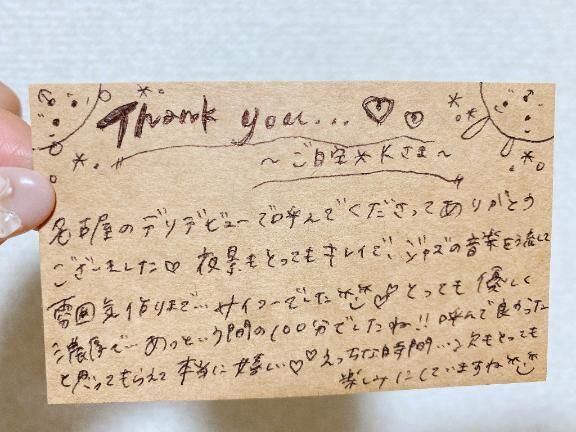 Thank you...♡♡
～ご自宅＊Kさま～
名古屋のデリデビューで呼んでくださってありがとう
ございました♡ 夜景もとってもキレイで、ジャズの音楽を流して
雰囲気作りまで…サイコーでした♡とっても優しく
濃厚で…あっという間の100分でしたね!!呼んで良かった
と思ってもらえて本当に嬉しい♡♡えっちな時間…次もとっても
楽しみにしていますね